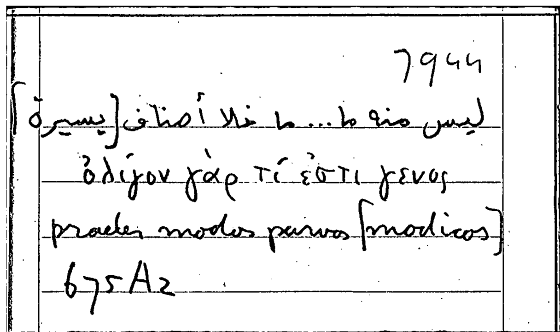 7944
ليس منه ما... ما خلا أصناف [يسيرة]
ὀλίγον γάρ τί ἐστι γένος
praeter modos parvos [modicos]
675A2